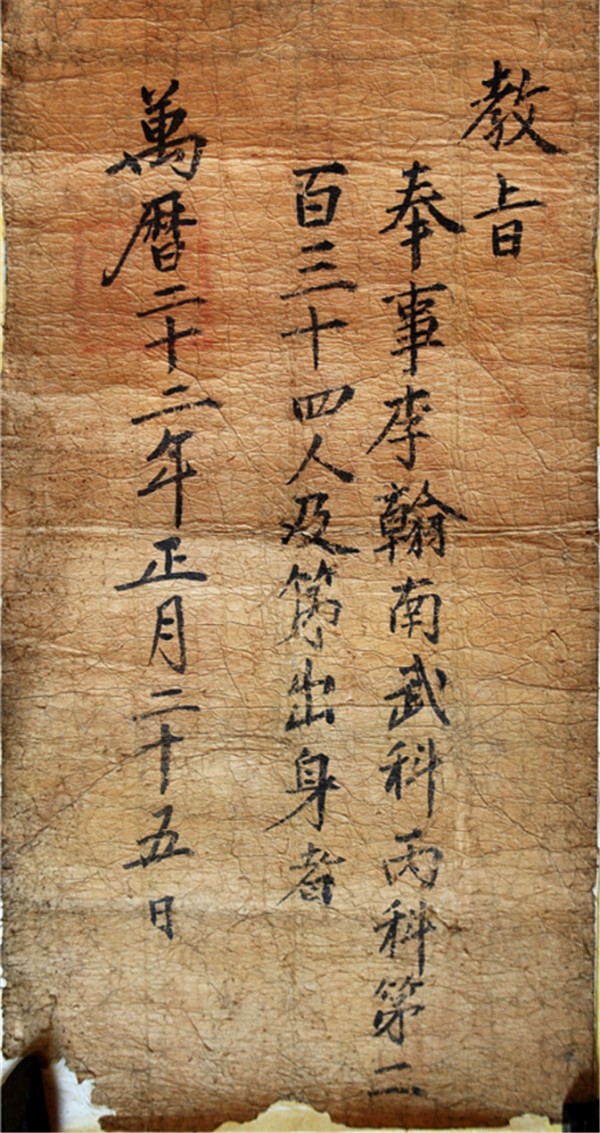 教旨
奉事李翰南武科丙科第二
百三十四人及第出身者
萬曆二十二年正月二十五日